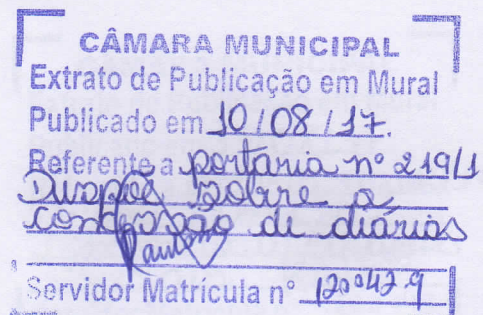 CÂMARA MUNICIPAL
Extrato de Publicação em Mural
Publicado em 10/08/17.
Referente a portaria nº 219/1
Dispõe sobre a
concessão de diárias
Servidor Matrícula nº